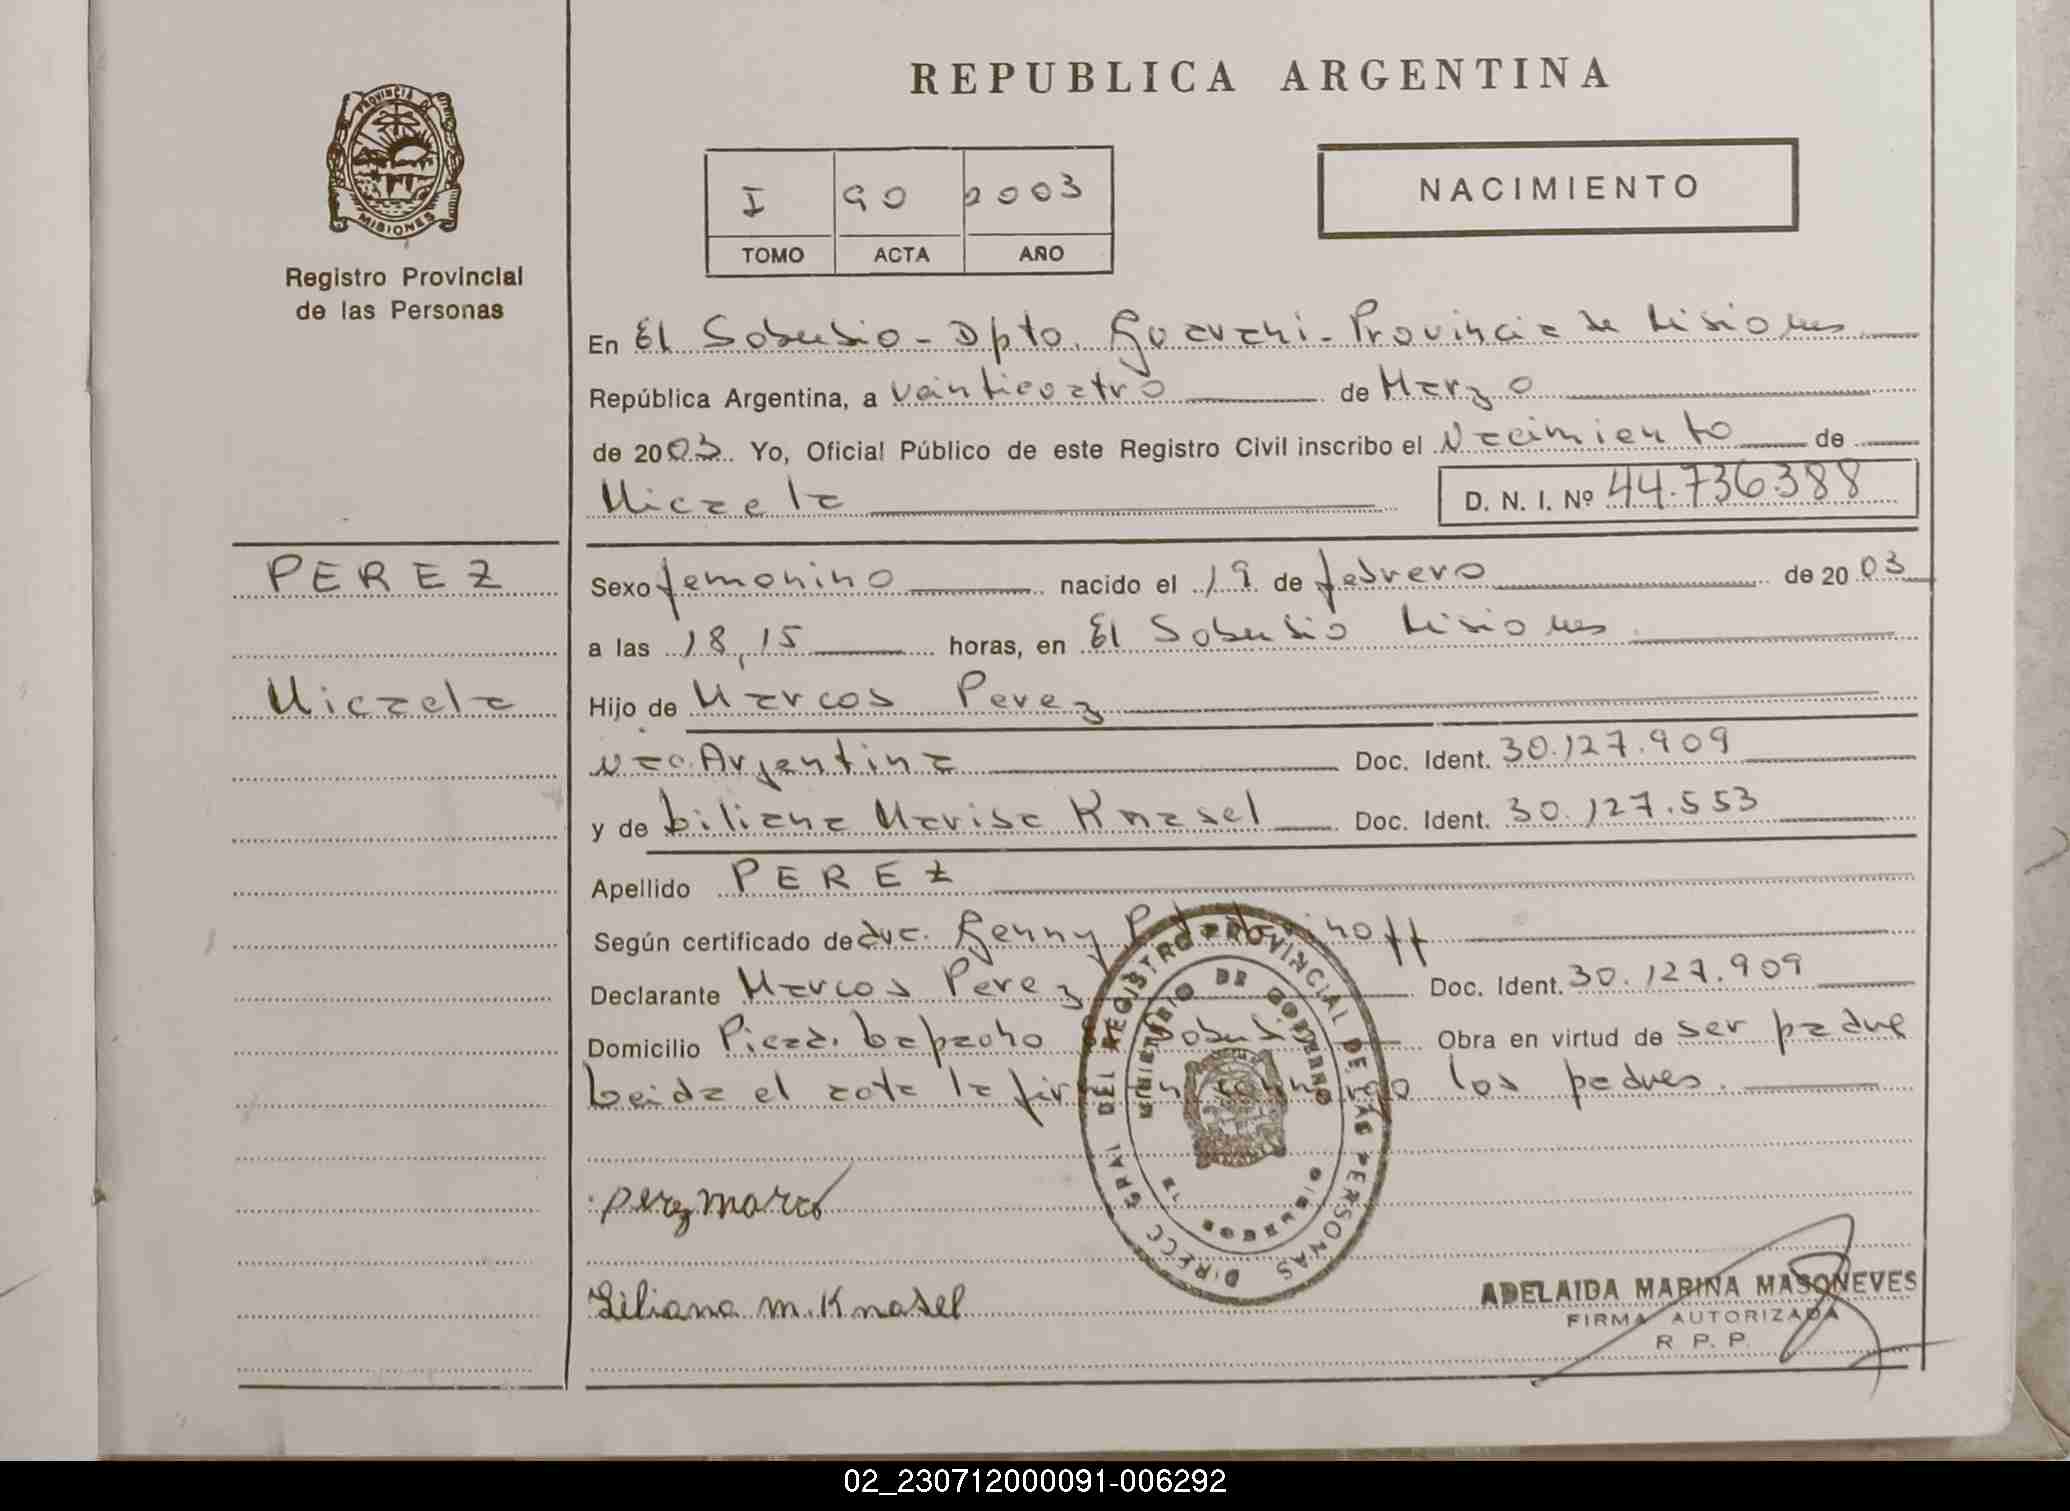 REPUBLICA ARGENTINA
PROVINCIA DE
MISIONES
Registro Provincial
de las Personas
I 90 2003
TOMO ACTA AÑO
NACIMIENTO
En El Soberbio - Dpto. Guarani - Provincia de Misiones
República Argentina, a veinticuatro de Marzo
de 2003. Yo, Oficial Público de este Registro Civil inscribo el Nacimiento de
Micaela D. N. I. Nº 44.736.388
PEREZ
Micaela
Sexo femenino nacido el 19 de febrero de 2003
a las 18,15 horas, en El Soberbio Misiones
Hijo de Marcos Perez
Nac. Argentina Doc. Ident. 30.127.909
y de Liliana Marisa Knasel Doc. Ident. 30.127.553
Apellido PEREZ
Según certificado de Genny
Declarante Marcos Perez Doc. Ident. 30.127.909
Domicilio Picad. Lapacho Obra en virtud de ser padre
Leida el acta la los padres.
DIRECC GRAL DEL REGISTRO PROVINCIAL DE LAS PERSONAS
MINISTERIO DE GOBIERNO
MISIONES
perez marco
Liliana M. Knasel
ADELAIDA MARINA MASONEVES
FIRMA AUTORIZADA
R. P. P.
02_230712000091-006292